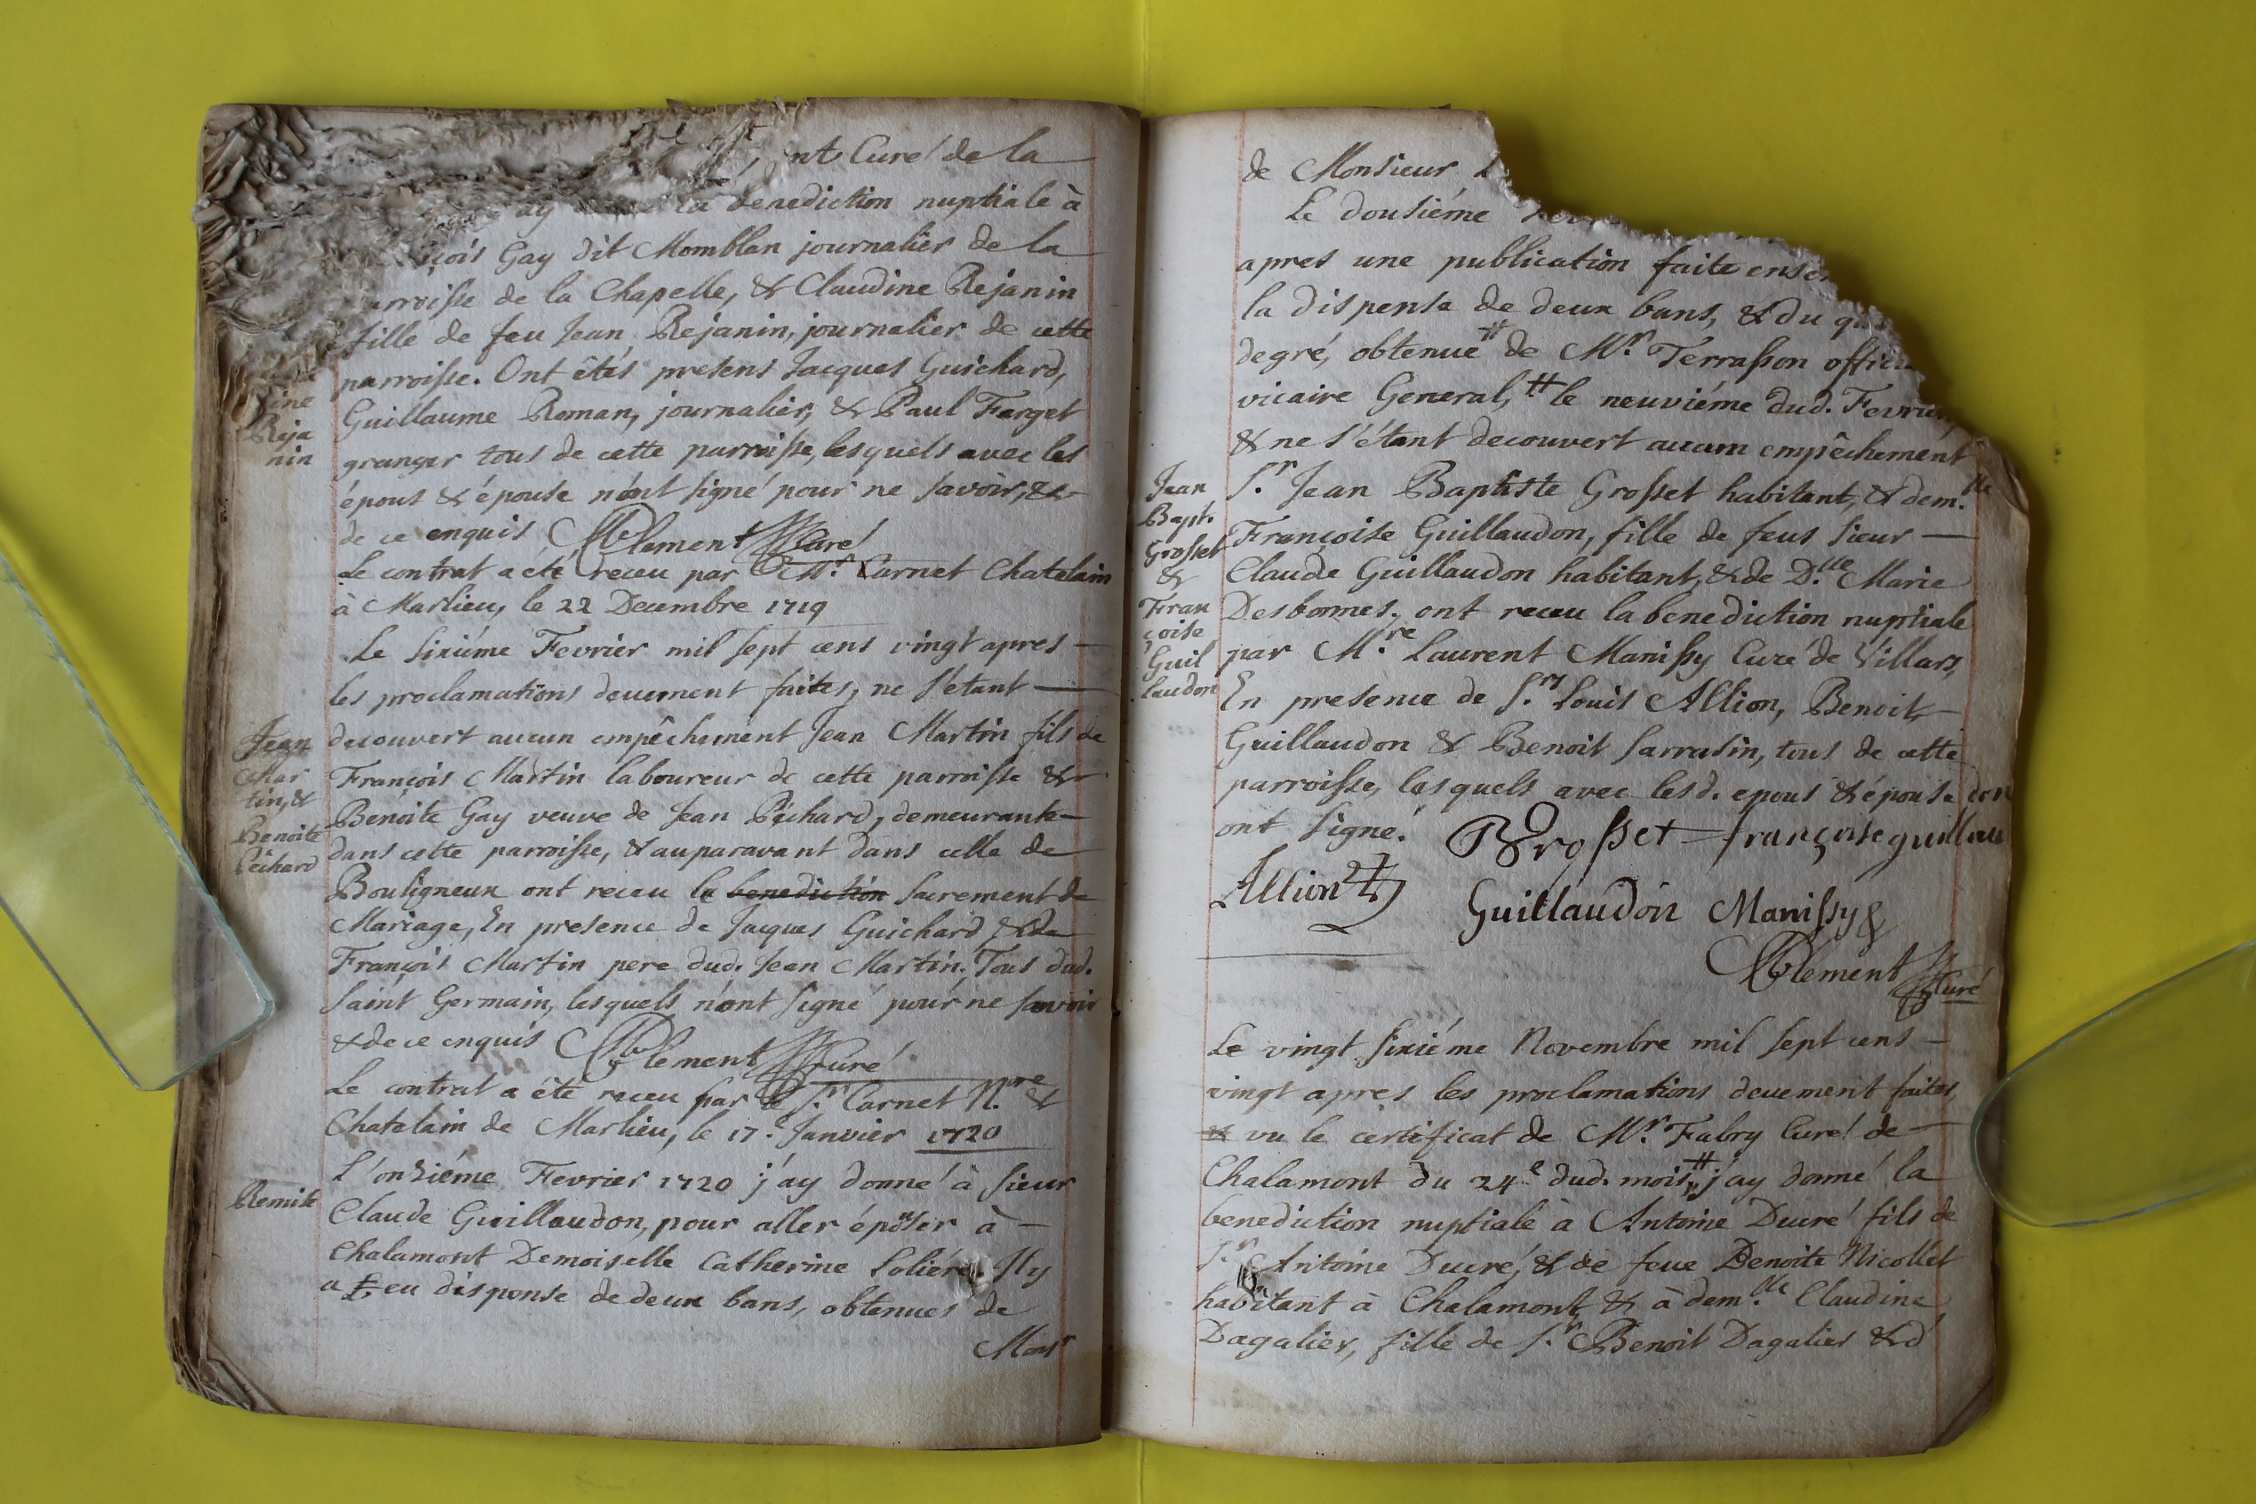 nt Curé de la
ay la benediction nuptiale à
çois Gay dit Momblan journalier de la
arroisse de la Chapelle, & Claudine Rejanin
fille de feu Jean Rejanin, journalier de cette
parroisse. Ont êtés presens Jacques Guichard,
Guillaume Roman, journalier, & Paul Farget
granger tous de cette parroisse, lesquels avec les
épous & épouse n'ont signé pour ne savoir, &
de ce enquis Clement Curé
Le contrat a été receu par Mr. Carnet Chatelain
à Marlieu, le 22 Decembre 1719
ine
Reja
nin
Le sixiéme Fevrier mil sept cens vingt apres
les proclamations deuement faites, ne s'étant
decouvert aucun empêchement Jean Martin fils de
François Martin laboureur de cette parroisse &
Benoite Gay veuve de Jean Péchard, demeurante
dans cette parroisse, & auparavant dans celle de
Bouligneux ont receu le benediction sacrement de
Mariage, En presence de Jacques Guichard & de
François Martin pere dud. Jean Martin. Tous dud.
Saint Germain, lesquels n'ont signé pour ne savoir
& de ce enquis Clement Curé
Le contrat a été receu par le Sr. Carnet Nre. &
Chatelain de Marlieu, le 17e. Janvier 1720
Jean
Mar
tin, &
Benoite
Péchard
L'onziéme Fevrier 1720 j'ay donné à sieur
Claude Guillaudon, pour aller épouser à
Chalamont Demoiselle Catherine Soliére Il y
a eu dispense de deux bans, obtenues de
Monsr
Remise
de Monsieur
Le dousiéme
apres une publication faite
la dispense de deux bans, & du
degré, obtenue # de Mr. Terrasson
vicaire General, # le neuviéme dud.
& ne s'étant decouvert aucun empêchement
Sr. Jean Baptiste Grosset habitant, & demlle.
Françoise Guillaudon, fille de feus sieur
Claude Guillaudon habitant, & de Dlle. Marie
Desbonnes. ont receu la benediction nuptiale
par Mre. Laurent Manissy Curé de Villars,
En presence de Srs. Louis Allion, Benoit
Guillaudon & Benoit Sarrasin, tous de cette
parroisse, lesquels avec lesd. epous & épouse
ont signé. Brosset françoise guillau
don
Allion
Guillaudon Manissy
Clement Curé
Jean
Bapt.
Grosset
&
Fran
çoise
Guil
laudon
Le vingt sixiéme Novembre mil sept cens
vingt apres les proclamations deuement faites
& vu le certificat de Mr. Fabry Curé de
Chalamont du 24e. dud. mois # j'ay donné la
benediction nuptiale à Antoine Ducré fils de
Sr. Antoine Ducré, & de feue Benoite Nicollet
habitant à Chalamont, & à demlle. Claudine
Dagalier, fille de Sr. Benoit Dagalier & d